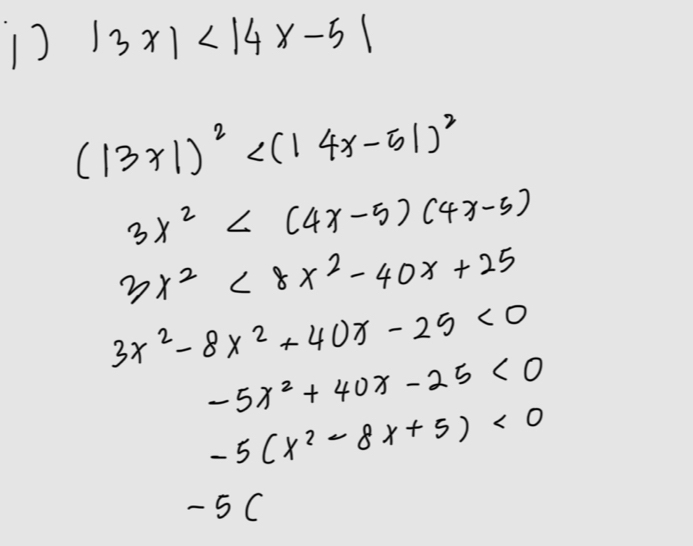 1) |3x| < |4x-5|
(|3x|)² < (|4x-5|)²
3x² < (4x-5)(4x-5)
3x² < 8x² - 40x + 25
3x² - 8x² + 40x - 25 < 0
-5x² + 40x - 25 < 0
-5(x² - 8x + 5) < 0
-5(